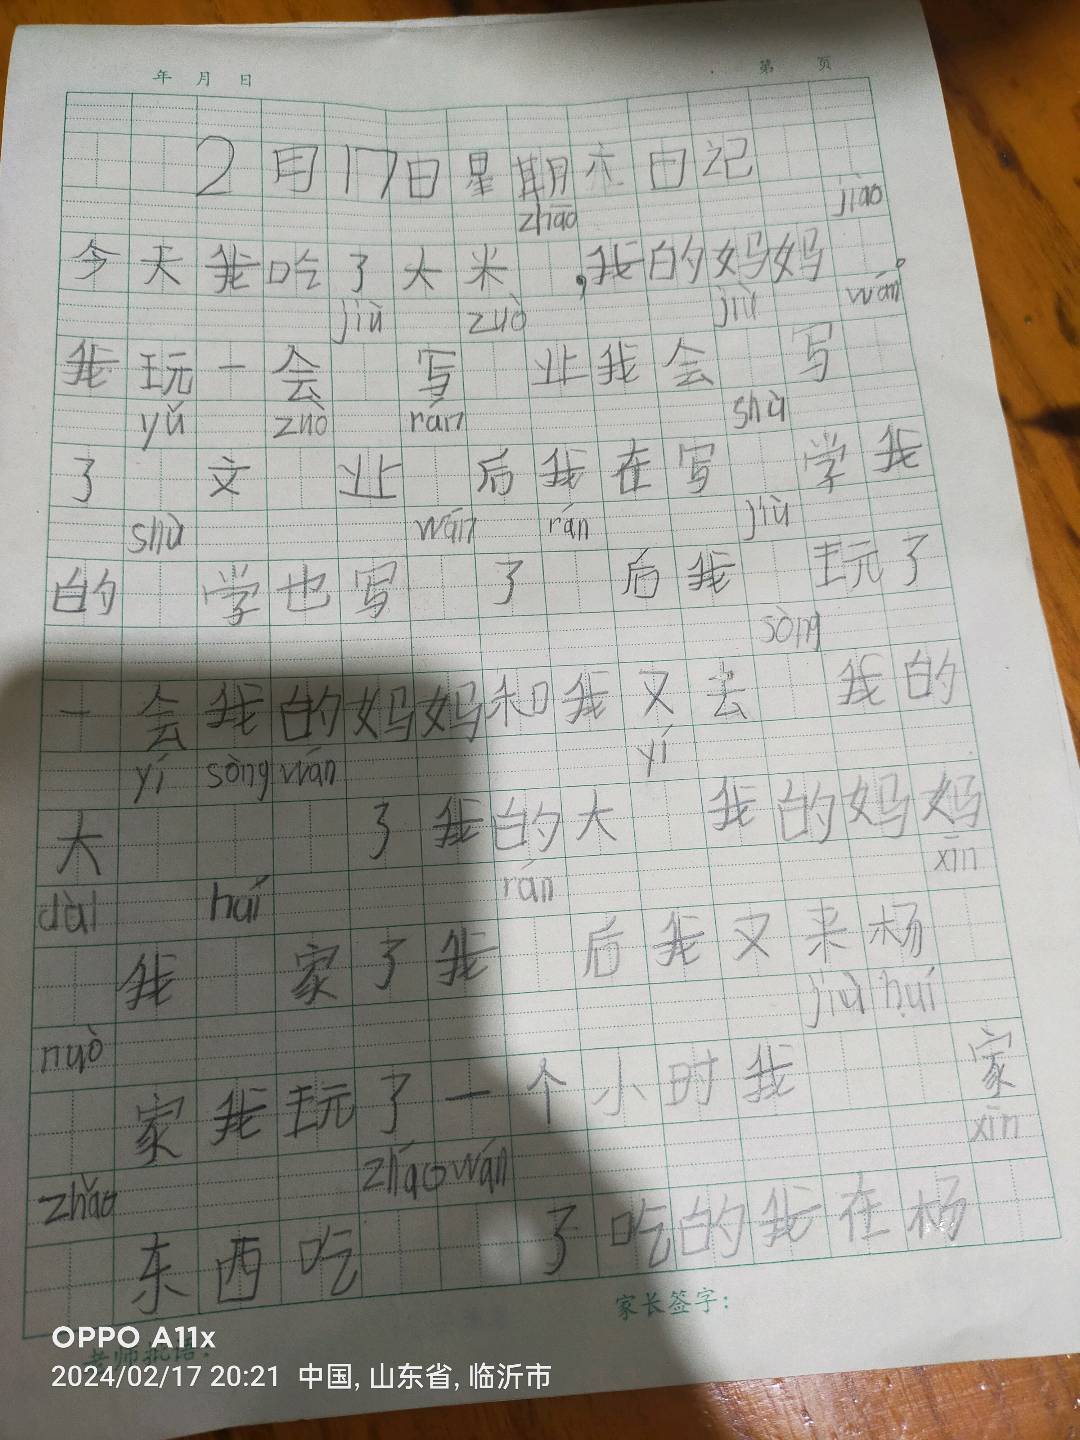 年 月 日
第 页
2月17日星期六日记
zhāo jiào
今天我吃了大米 ,我的妈妈 。
jiù zuò jiù wán
我玩一会 写 业我会 写
yǔ zuò rán shù
了 文 业 后我在写 学我
shù wán rán jiù
的 学也写 了 后我 玩了
sòng
一会我的妈妈和我又去 我的
yí sòng wán yí
大 了我的大 我的妈妈
dàl huí rán xīn
我 家了我 后我又来杨
nuò jiù huí
家我玩了一个小时我 家
zhǎo zháo wán xīn
东西吃 了吃的我在杨
家长签字:
老师批语:
OPPO A11x
2024/02/17 20:21 中国, 山东省, 临沂市